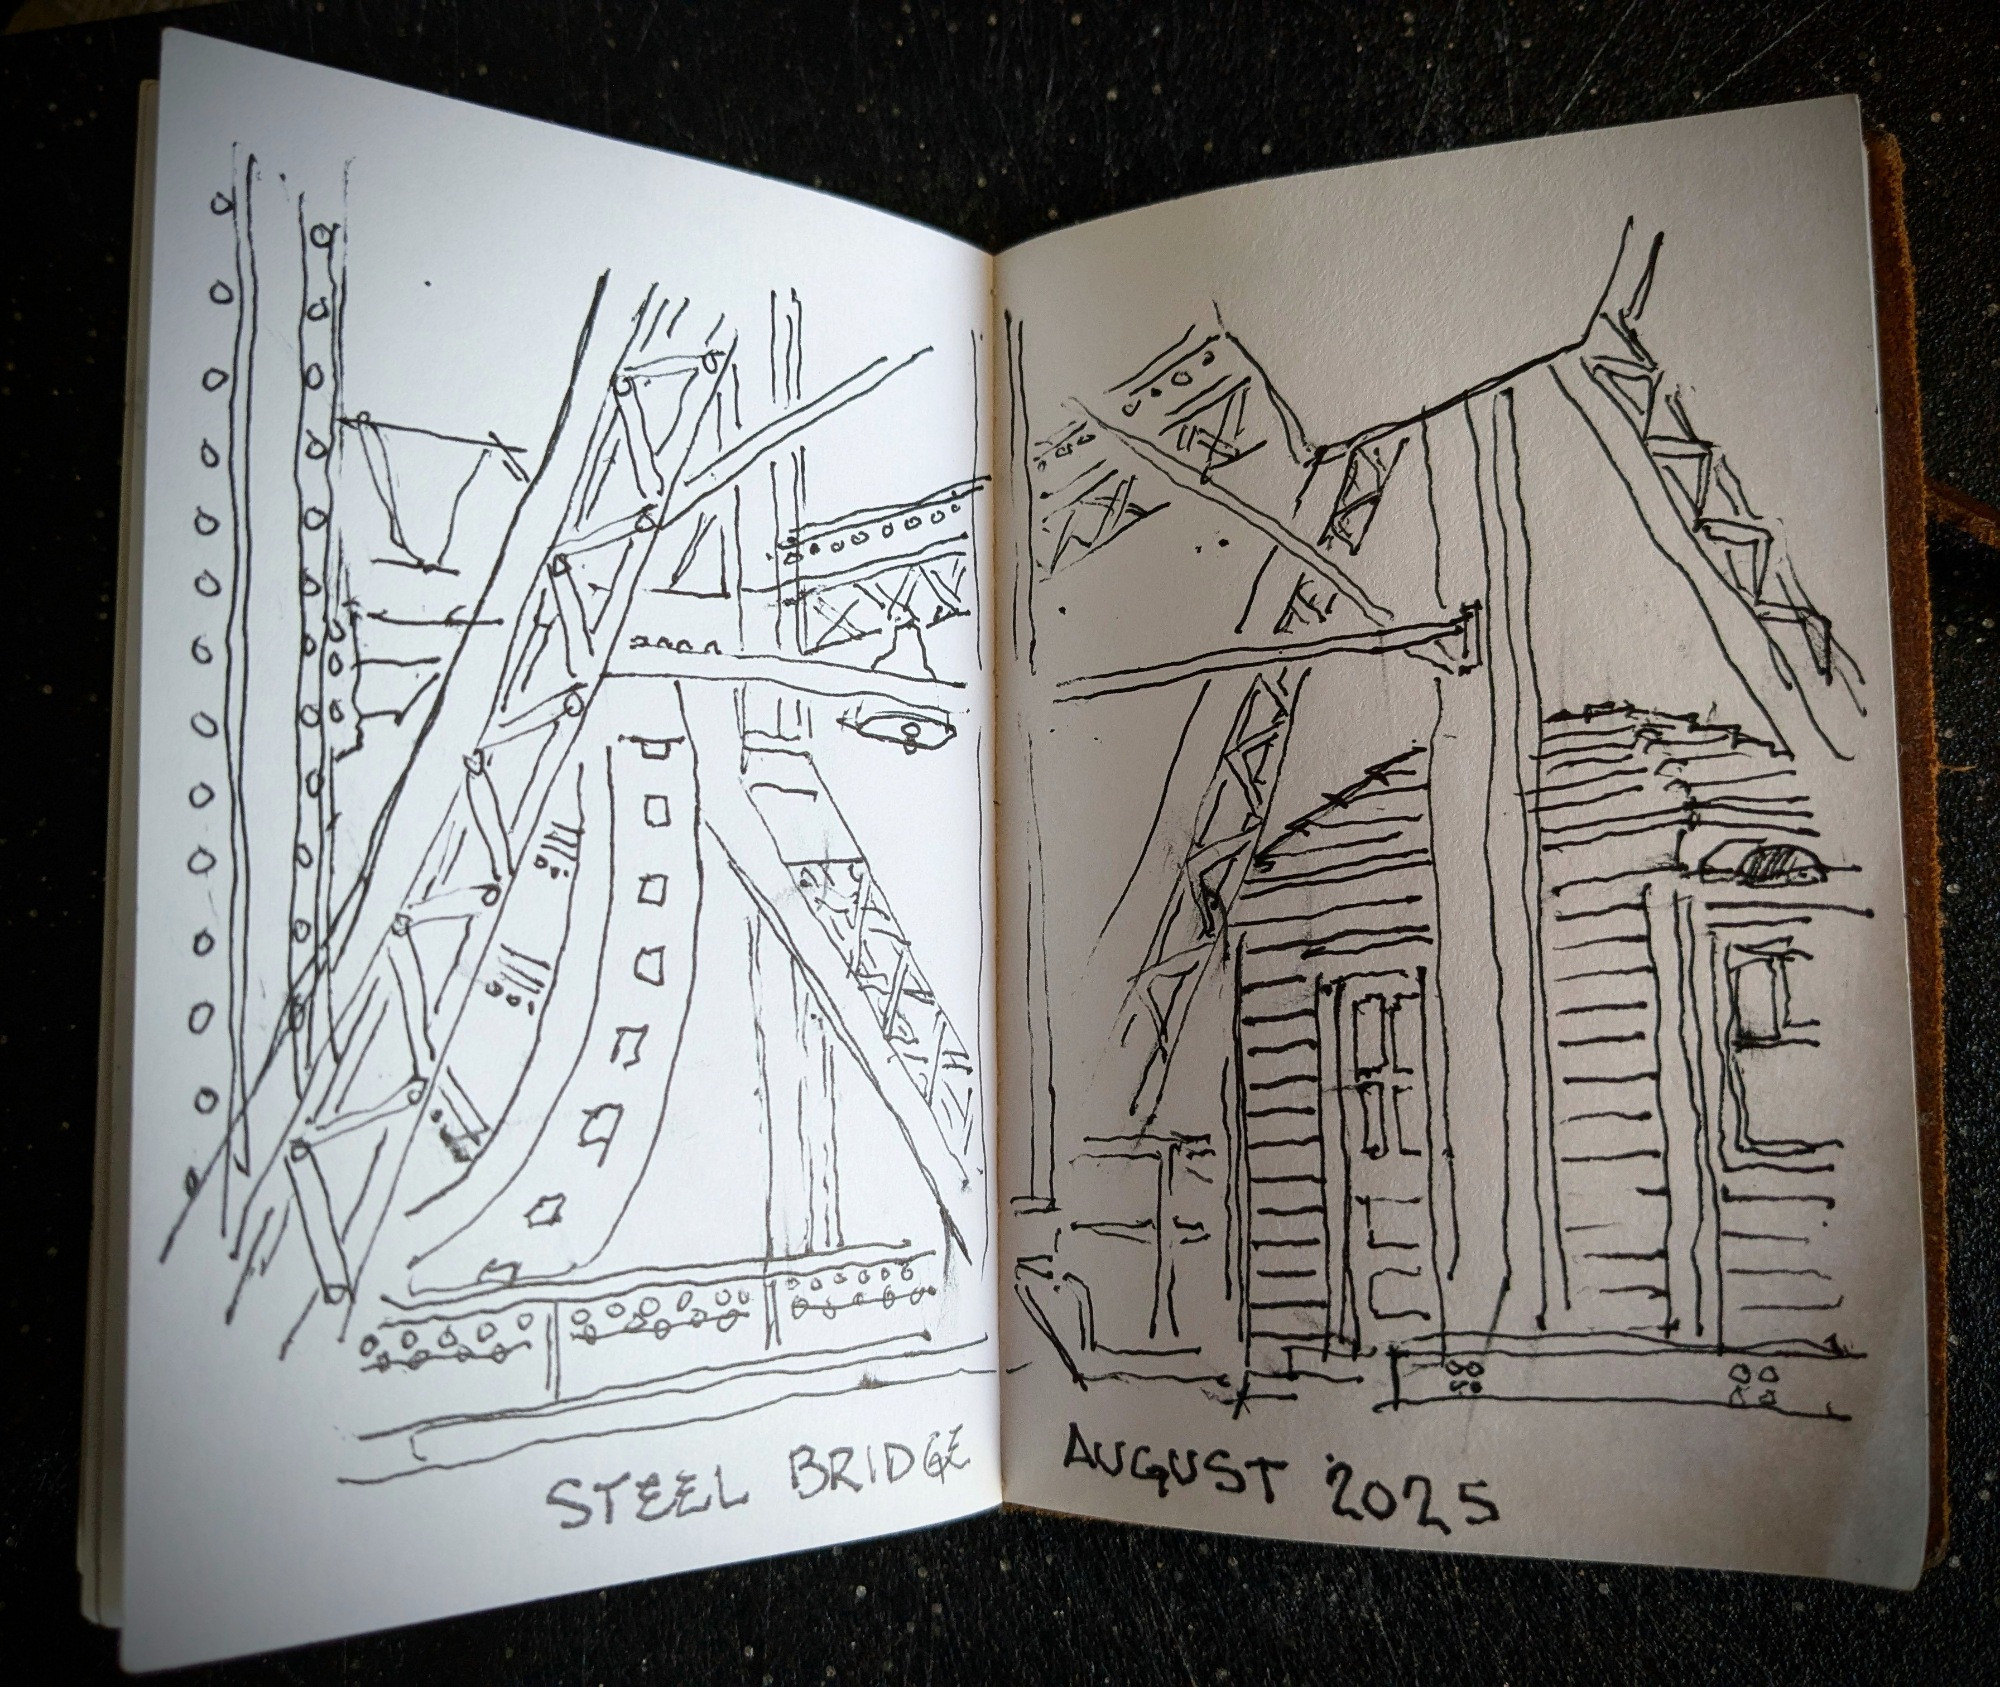 STEEL BRIDGE
AUGUST 2025